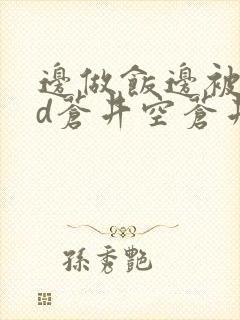 邊做飯邊被
d蒼井空蒼井
孫秀艷